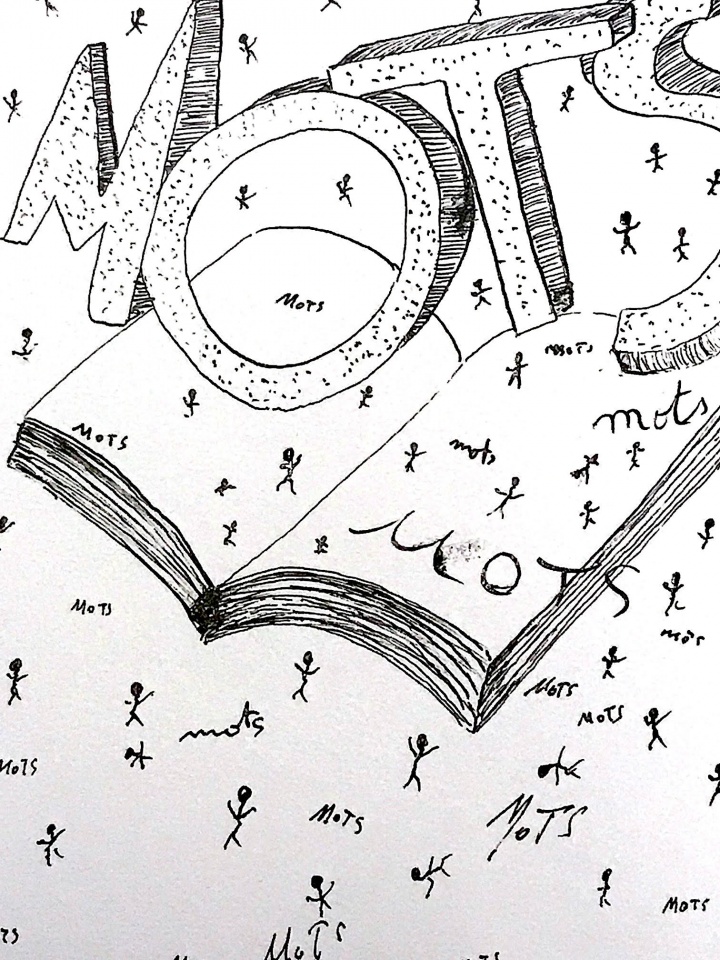 MOTS
MOTS
mots
MOTS
mots
MOTS
MOTS
mots
MOTS
MOTS
mots
MOTS
MOTS
MOTS
MOTS
MOTS